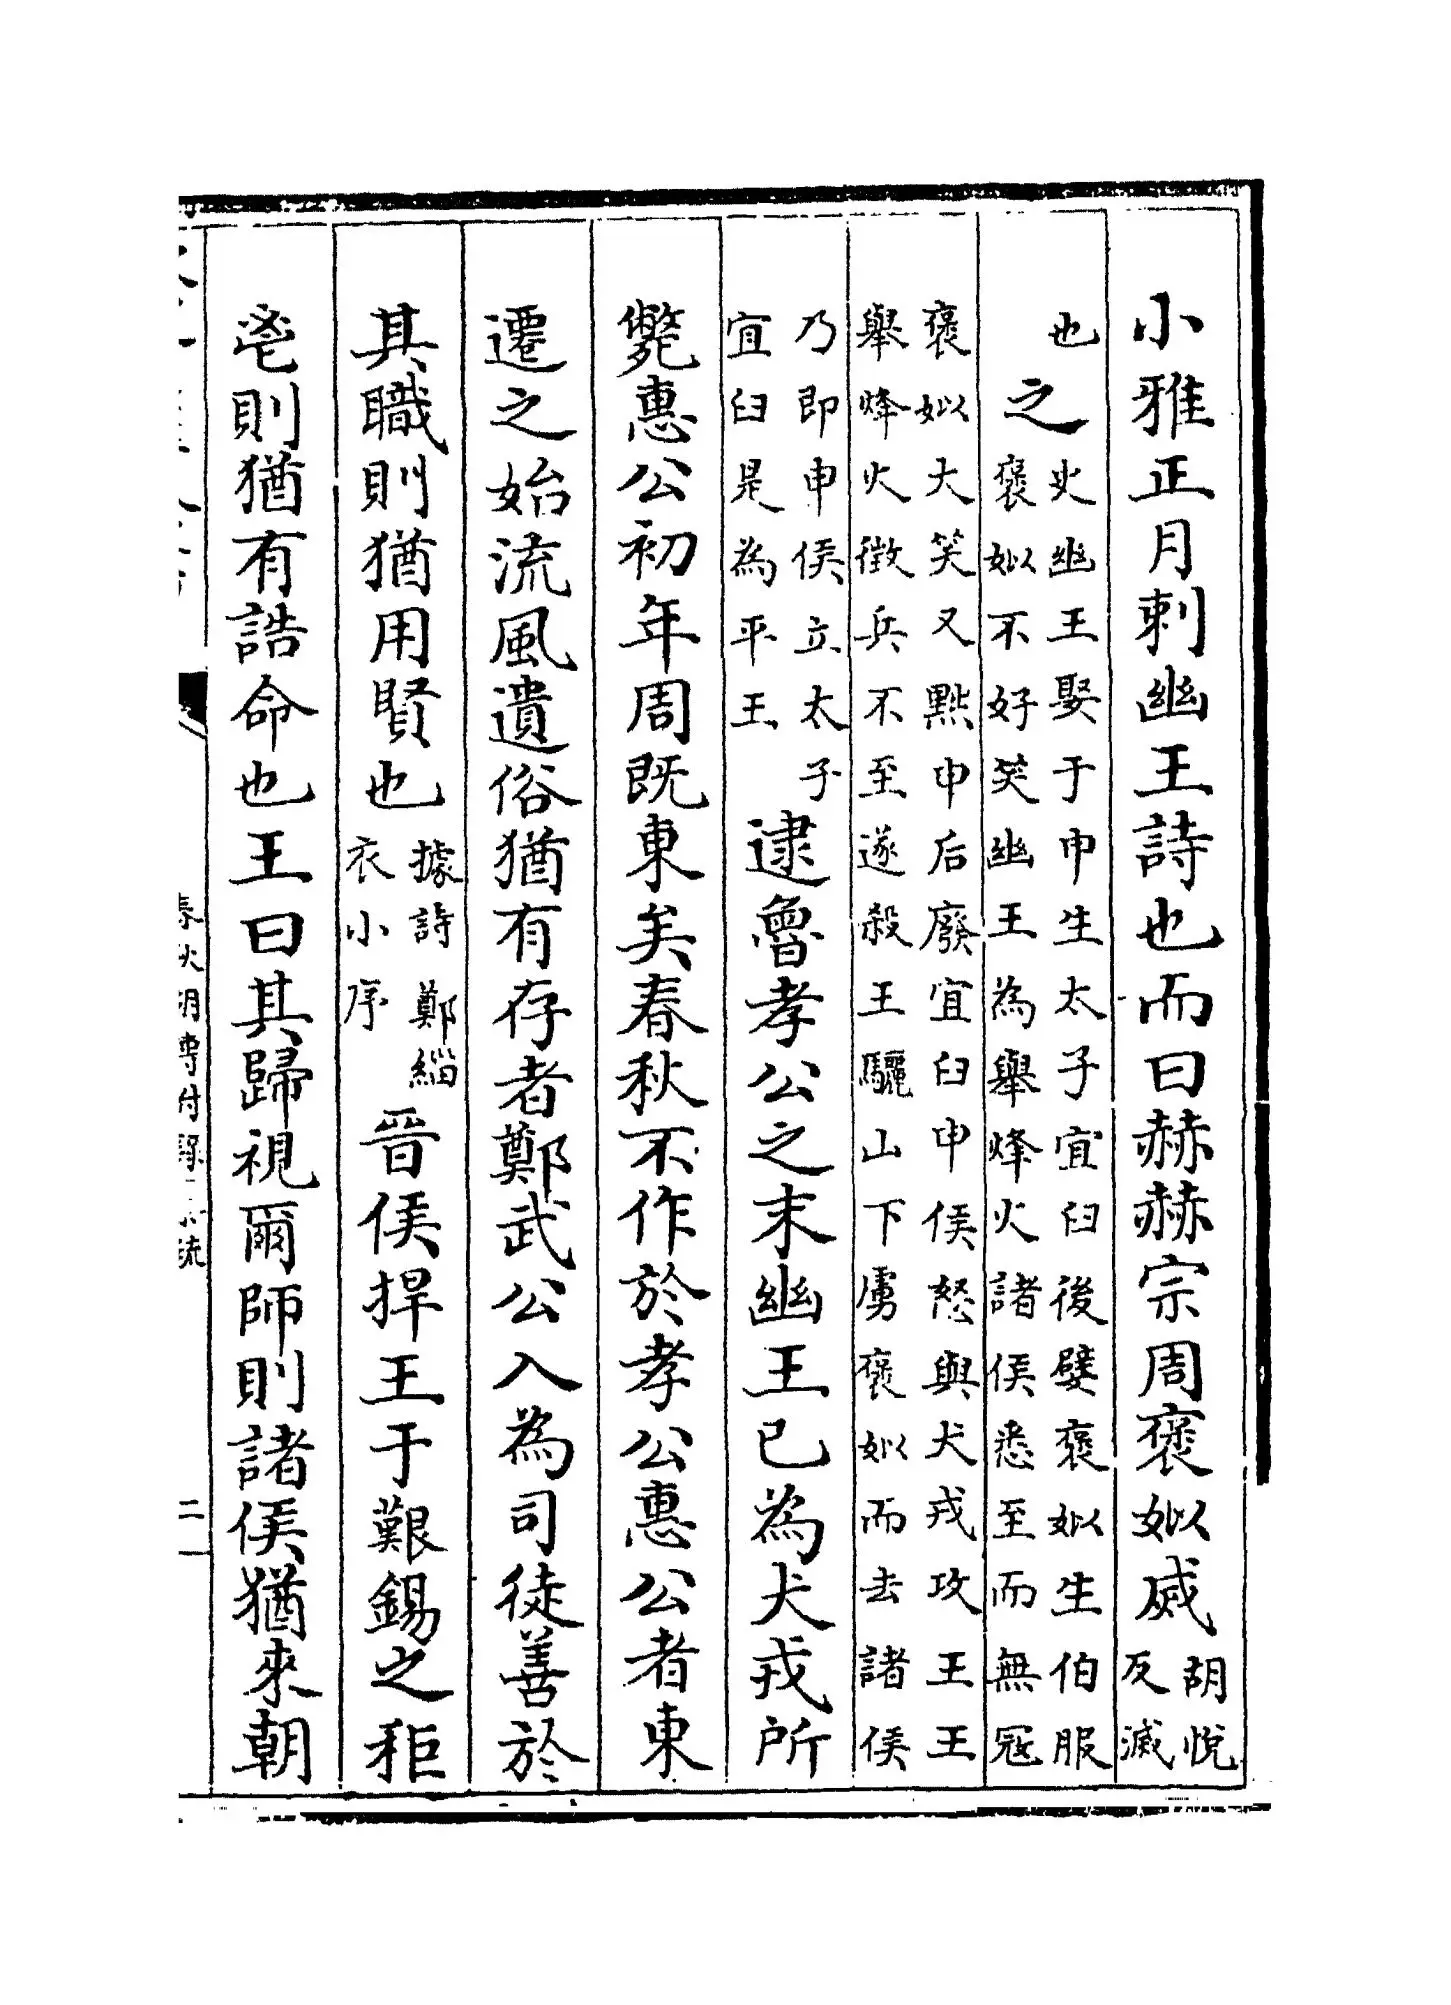 小雅正月刺幽王詩也而曰赫赫宗周褒姒烕胡悅反滅
也之史幽王娶于申生太子宜臼後嬖褒姒生伯服褒姒不好笑幽王為舉烽火諸侯悉至而無寇
褒姒大笑又黜申后廢宜臼申侯怒與犬戎攻王王舉烽火徵兵不至遂殺王驪山下虜褒姒而去諸侯
乃即申侯立太子宜臼是為平王逮魯孝公之末幽王已為犬戎所
斃惠公初年周既東矣春秋不作於孝公惠公者東
遷之始流風遺俗猶有存者鄭武公入為司徒善於
其職則猶用賢也據詩鄭緇衣小序晉侯捍王于艱錫之秬
鬯則猶有誥命也王曰其歸視爾師則諸侯猶來朝
春秋胡傳附錄
二